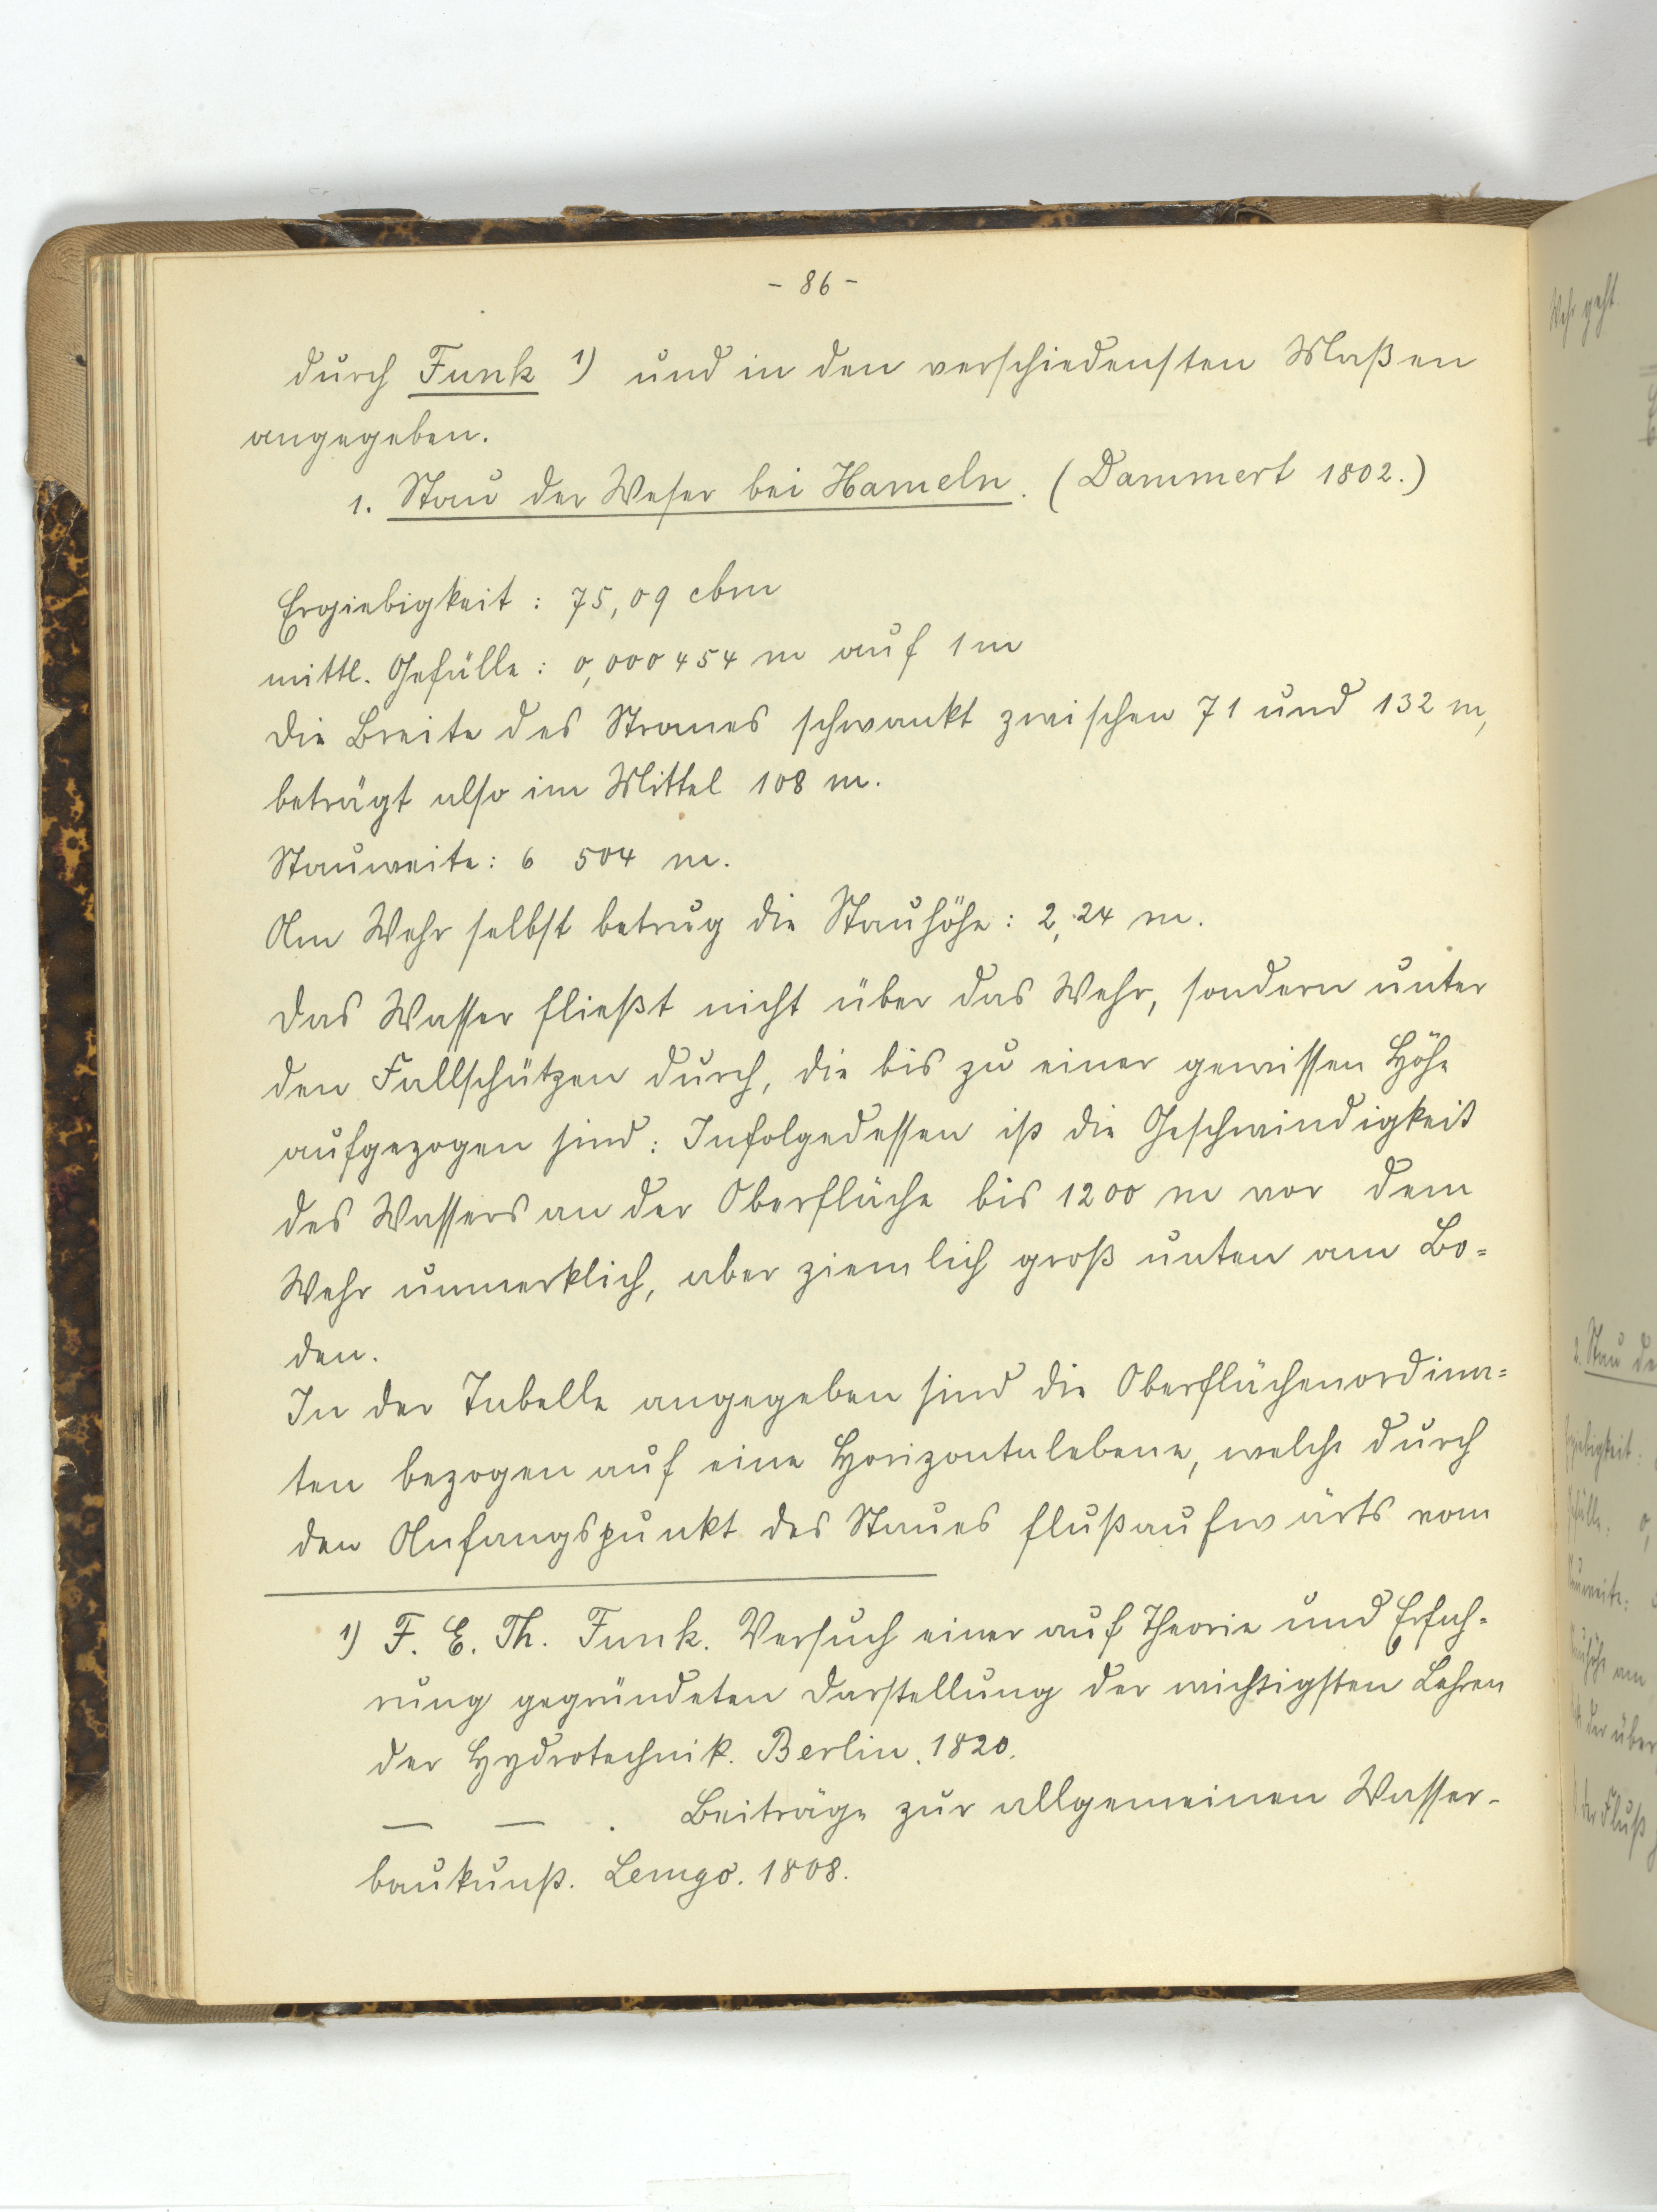 - 86 -
durch Funk 1) und in den verschiedensten Maßen
angegeben.
1. Stau der Weser bei Hameln. (Dammert 1802.)
Ergiebigkeit: 75,09 cbm
mittl. Gefälle: 0,000454 m auf 1 m
Die Breite des Stromes schwankt zwischen 71 und 132 m,
beträgt also im Mittel 108 m.
Stauweite: 6 504 m.
Am Wehr selbst betrug die Stauhöhe: 2,24 m.
Das Wasser fließt nicht über das Wehr, sondern unter
den Fallschützen durch, die bis zu einer gewissen Höhe
aufgezogen sind: Infolgedessen ist die Geschwindigkeit
des Wassers an der Oberfläche bis 1200 m vor dem
Wehr unmerklich, aber ziemlich groß unten am Bo=
den.
In der Tabelle angegeben sind die Oberflächenordina=
ten bezogen auf eine Horizontalebene, welche durch
den Anfangspunkt des Staues flußaufwärts vom
1) F. E. Th. Funk. Versuch einer auf Theorie und Erfah=
rung gegründeten Darstellung der wichtigsten Lehren
der Hydrotechnik. Berlin. 1820.
— — . Beiträge zur allgemeinen Wasser-
baukunst. Lemgo. 1808.
Wehr geht.
2. Stau de